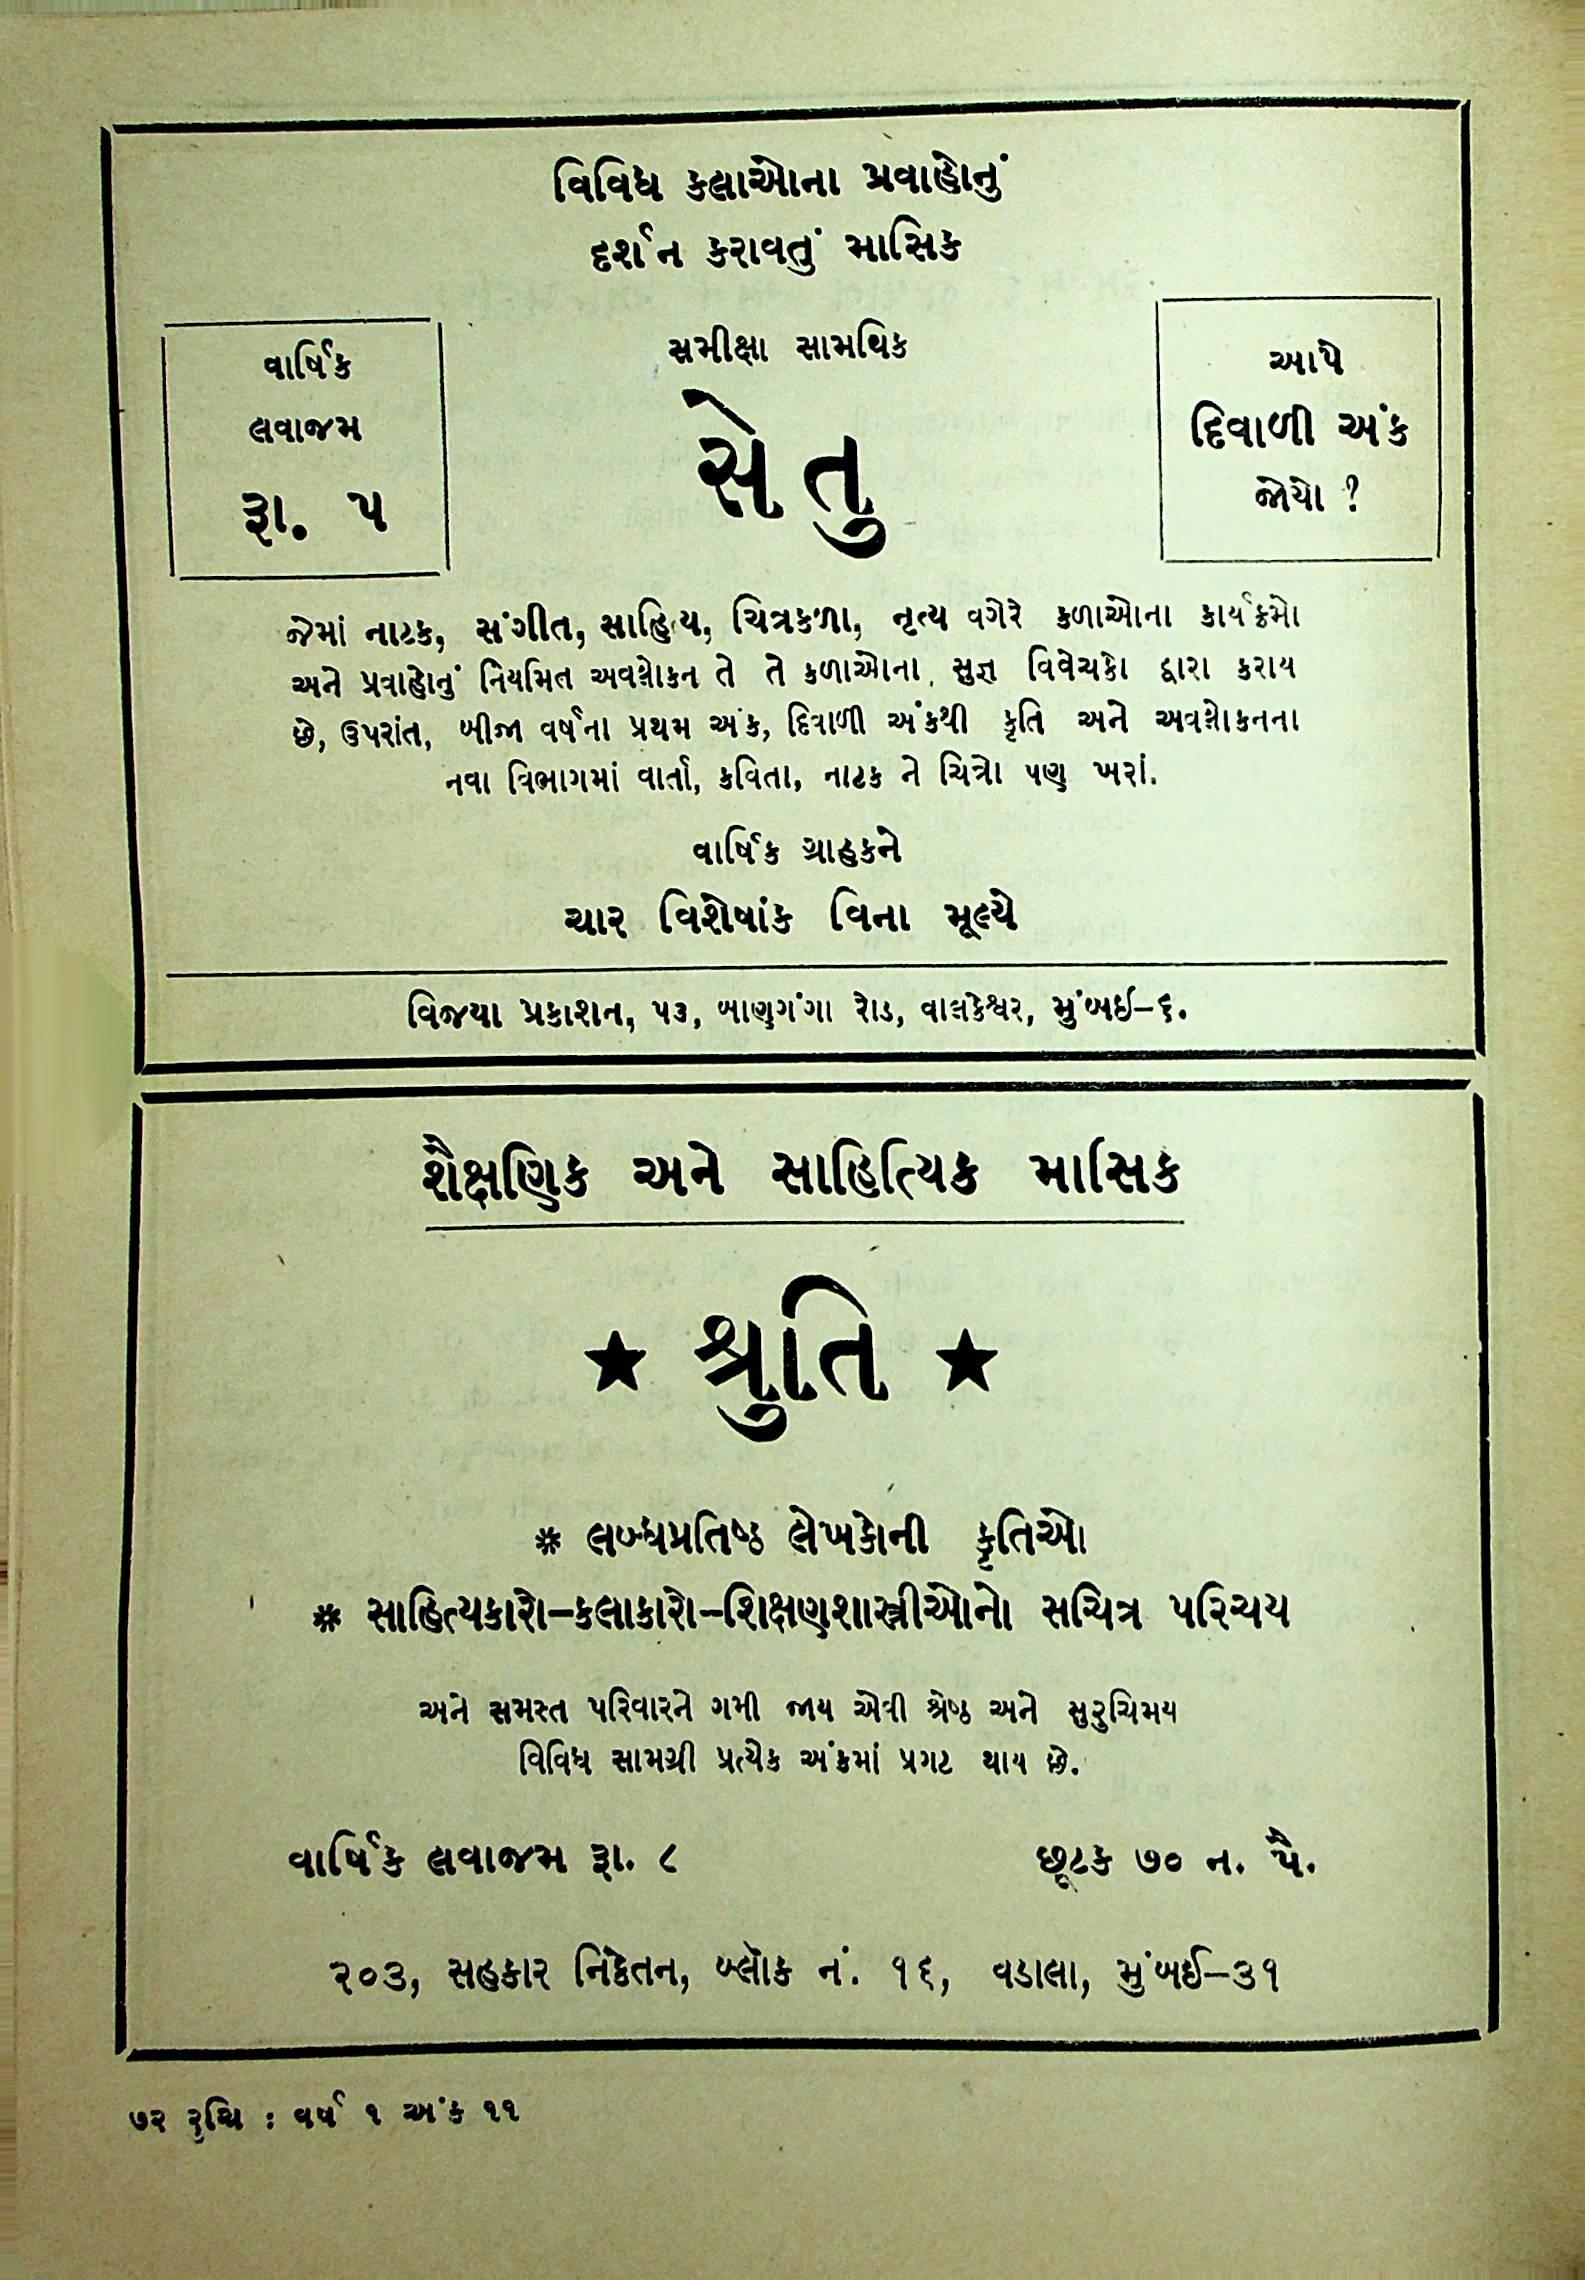 વિવિધ કલાઓના પ્રવાહોનું
દર્શન કરાવતું માસિક
વાર્ષિક
લવાજમ
રૂા. ૫
સમીક્ષા સામયિક
સેતુ
આપે
દિવાળી અંક
જોયો ?
જેમાં નાટક, સંગીત, સાહિત્ય, ચિત્રકળા, નૃત્ય વગેરે કળાઓના કાર્યક્રમો
અને પ્રવાહોનું નિયમિત અવલોકન તે તે કળાઓના સુજ્ઞ વિવેચકો દ્વારા કરાય
છે, ઉપરાંત, બીજા વર્ષના પ્રથમ અંક, દિવાળી અંકથી કૃતિ અને અવલોકનના
નવા વિભાગમાં વાર્તા, કવિતા, નાટક ને ચિત્રો પણ ખરાં.
વાર્ષિક ગ્રાહકને
ચાર વિશેષાંક વિના મૂલ્યે
વિજયા પ્રકાશન, ૫૩, બાણગંગા રોડ, વાલકેશ્વર, મુંબઈ–૬.
શૈક્ષણિક અને સાહિત્યિક માસિક
★ શ્રુતિ ★
* લબ્ધપ્રતિષ્ઠ લેખકોની કૃતિઓ
* સાહિત્યકારો–કલાકારો–શિક્ષણશાસ્ત્રીઓનો સચિત્ર પરિચય
અને સમસ્ત પરિવારને ગમી જાય એવી શ્રેષ્ઠ અને સુરુચિમય
વિવિધ સામગ્રી પ્રત્યેક અંકમાં પ્રગટ થાય છે.
વાર્ષિક લવાજમ રૂા. ૮ છૂટક ૭૦ ન. પૈ.
૨૦૩, સહકાર નિકેતન, બ્લૉક નં. ૧૬, વડાલા, મુંબઈ–૩૧
૭૨ રુચિ : વર્ષ ૧ અંક ૧૧